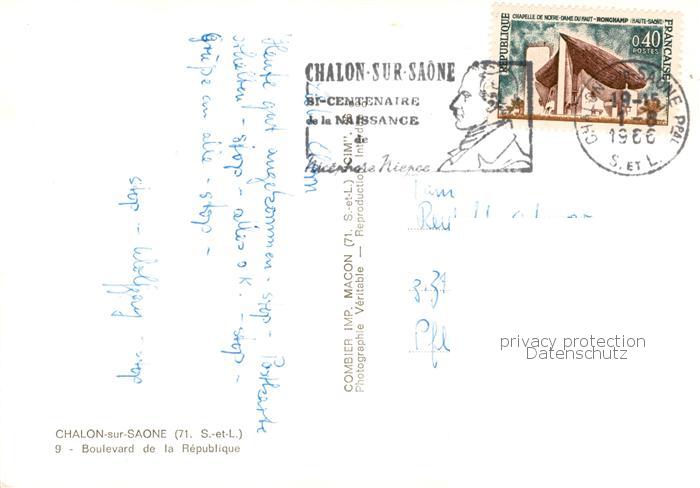 CHAPELLE DE NOTRE-DAME DU HAUT - RONCHAMP (HAUTE-SAÔNE)
RÉPUBLIQUE
FRANÇAISE
0,40
POSTES
CHALON-SUR-SAÔNE
BI-CENTENAIRE
de la NAISSANCE
de
Nicéphore Niepce
CHALON S SAÔNE PPAL
19-15
1-8
1966
S. ET L.
heute gut angekommen - stop - Postkarte
erhalten - stop - alles o.k. - stop -
Grüße an alle - stop -
stop - Wolfgang - stop
COMBIER IMP. MACON (71. S.-et-L.) "CIM"
Photographie Véritable — Reproduction Interdite
privacy protection
Datenschutz
CHALON-sur-SAONE (71. S.-et-L.)
9 - Boulevard de la République